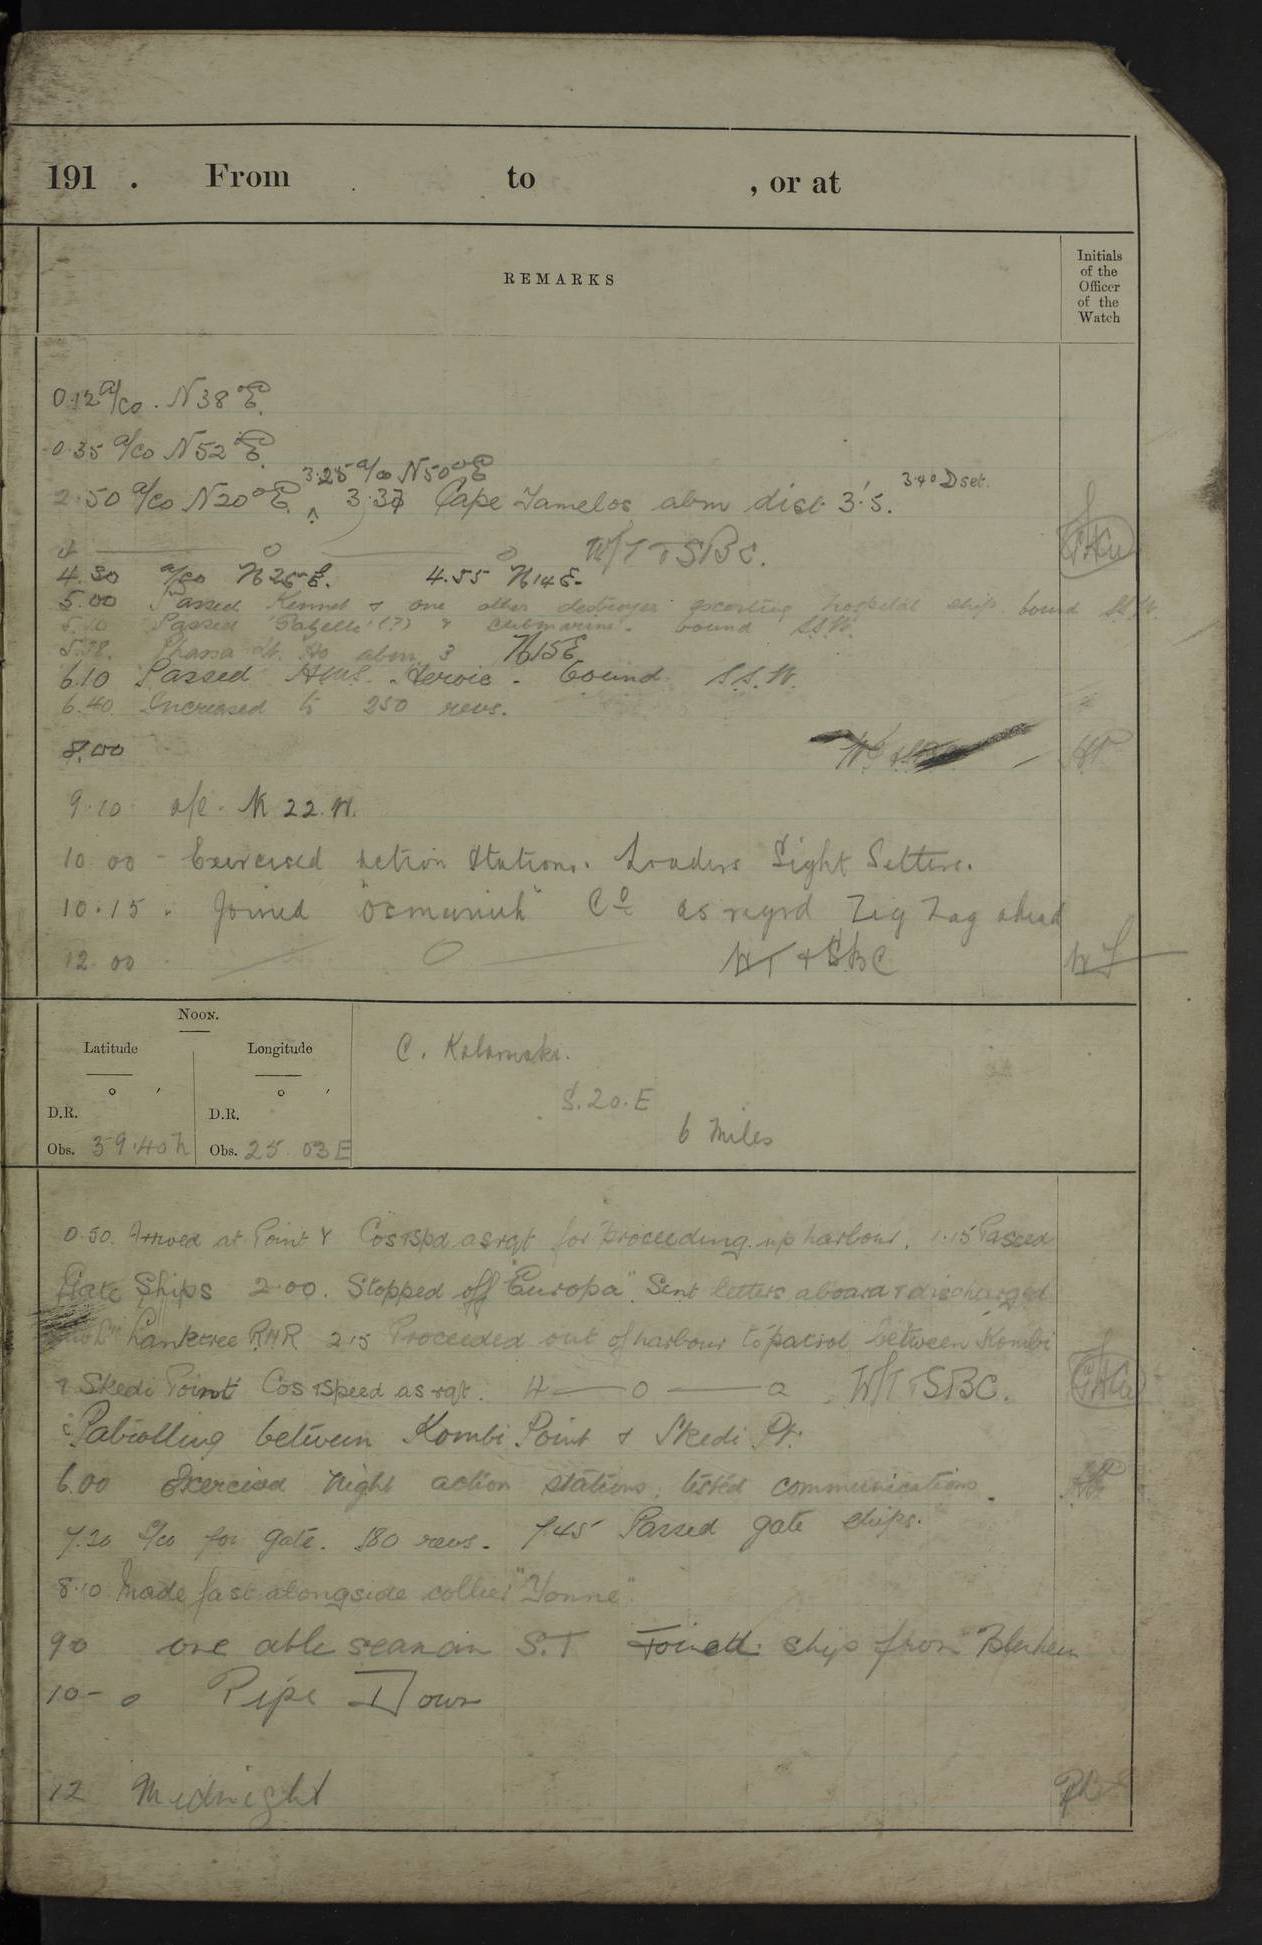 191 . From to , or at
REMARKS
Initials of the Officer of the Watch
0.12 a/co. N38°E.
0.35 a/co N52°E.
3.25 a/co N50°E
2.50 a/co N20°E. ^ 3.37 Cape Tamelos abm dist 3'.5. 3.40 D set.
4 — o — o W/T + SBC.
4.30 a/co N26E. 4.55 N14E.
5.00 Passed Kennet & one other destroyer escorting hospital ship bound SSW.
Passed "Gazelle" (?) & submarine. bound SSW.
5.38. abm 3 N15E
6.10 Passed HMS. Heroic. bound S.S.W.
6.40 Increased to 250 revs.
8.00
9.10 a/c. N 22. W.
10.00 - Exercised action Stations. Loaders Sight Setters.
10.15. Joined " " Co as reqrd Zig Zag ahead
12.00 — o — WT + SBC
Noon.
Latitude Longitude
° ′ ° ′
D.R. D.R.
Obs. 39.40 N Obs. 25 03 E
C.
S.20.E
6 Miles
0.50. Arrived at Point Y Cos & spd as rqt for proceeding up harbour. 1.15 Passed
Gate Ships 2.00. Stopped off "Europa". Sent letters aboard & discharged
RNR 2.15 Proceeded out of harbour to patrol between Kombi
& Skedi Point Cos & speed as rqt. 4 — o — o W/T + SBC.
Patrolling between Kombi Point & Skedi Pt.
6.00 Exercised Night action stations, tested communications.
7.20 a/co for gate. 180 revs. 7.45 Passed gate ships.
8.10 Made fast alongside collier "Yonne"
9 0 one able seaman S.T Joined ship from Blenheim
10 - 0 Pipe Down
12 Midnight